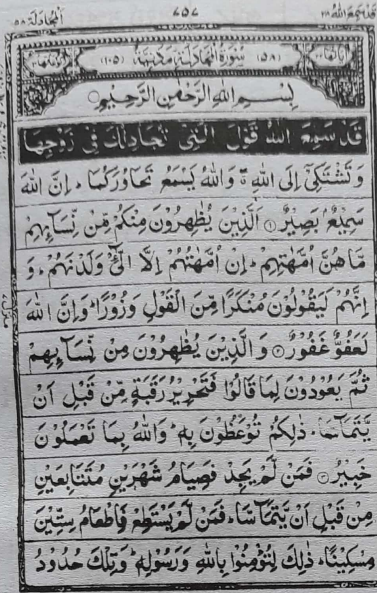 قد سمع الله ٢٨ ٧٥٧ المجادلة ٥٨
(٥٨) سُوْرَةُ الْمُجَادِلَةِ مَدَنِيَّةٌ (١٠٥)
بِسْمِ اللهِ الرَّحْمٰنِ الرَّحِيْمِ
قَدْ سَمِعَ اللهُ قَوْلَ الَّتِيْ تُجَادِلُكَ فِيْ زَوْجِهَا
وَ تَشْتَكِيْٓ اِلَى اللهِ ۖ وَاللهُ يَسْمَعُ تَحَاوُرَكُمَا ؕ اِنَّ اللهَ
سَمِيْعٌۢ بَصِيْرٌ ۝۱ اَلَّذِيْنَ يُظٰهِرُوْنَ مِنْكُمْ مِّنْ نِّسَآىِٕهِمْ
مَّا هُنَّ اُمَّهٰتِهِمْ ؕ اِنْ اُمَّهٰتُهُمْ اِلَّا الّٰٓـِٔيْ وَلَدْنَهُمْ ؕ وَ
اِنَّهُمْ لَيَقُوْلُوْنَ مُنْكَرًا مِّنَ الْقَوْلِ وَزُوْرًا ؕ وَاِنَّ اللهَ
لَعَفُوٌّ غَفُوْرٌ ۝۲ وَ الَّذِيْنَ يُظٰهِرُوْنَ مِنْ نِّسَآىِٕهِمْ
ثُمَّ يَعُوْدُوْنَ لِمَا قَالُوْا فَتَحْرِيْرُ رَقَبَةٍ مِّنْ قَبْلِ اَنْ
يَّتَمَآسَّا ؕ ذٰلِكُمْ تُوْعَظُوْنَ بِهٖ ؕ وَاللهُ بِمَا تَعْمَلُوْنَ
خَبِيْرٌ ۝۳ فَمَنْ لَّمْ يَجِدْ فَصِيَامُ شَهْرَيْنِ مُتَتَابِعَيْنِ
مِنْ قَبْلِ اَنْ يَّتَمَآسَّا ؕ فَمَنْ لَّمْ يَسْتَطِعْ فَاِطْعَامُ سِتِّيْنَ
مِسْكِيْنًا ؕ ذٰلِكَ لِتُؤْمِنُوْا بِاللهِ وَرَسُوْلِهٖ ؕ وَتِلْكَ حُدُوْدُ